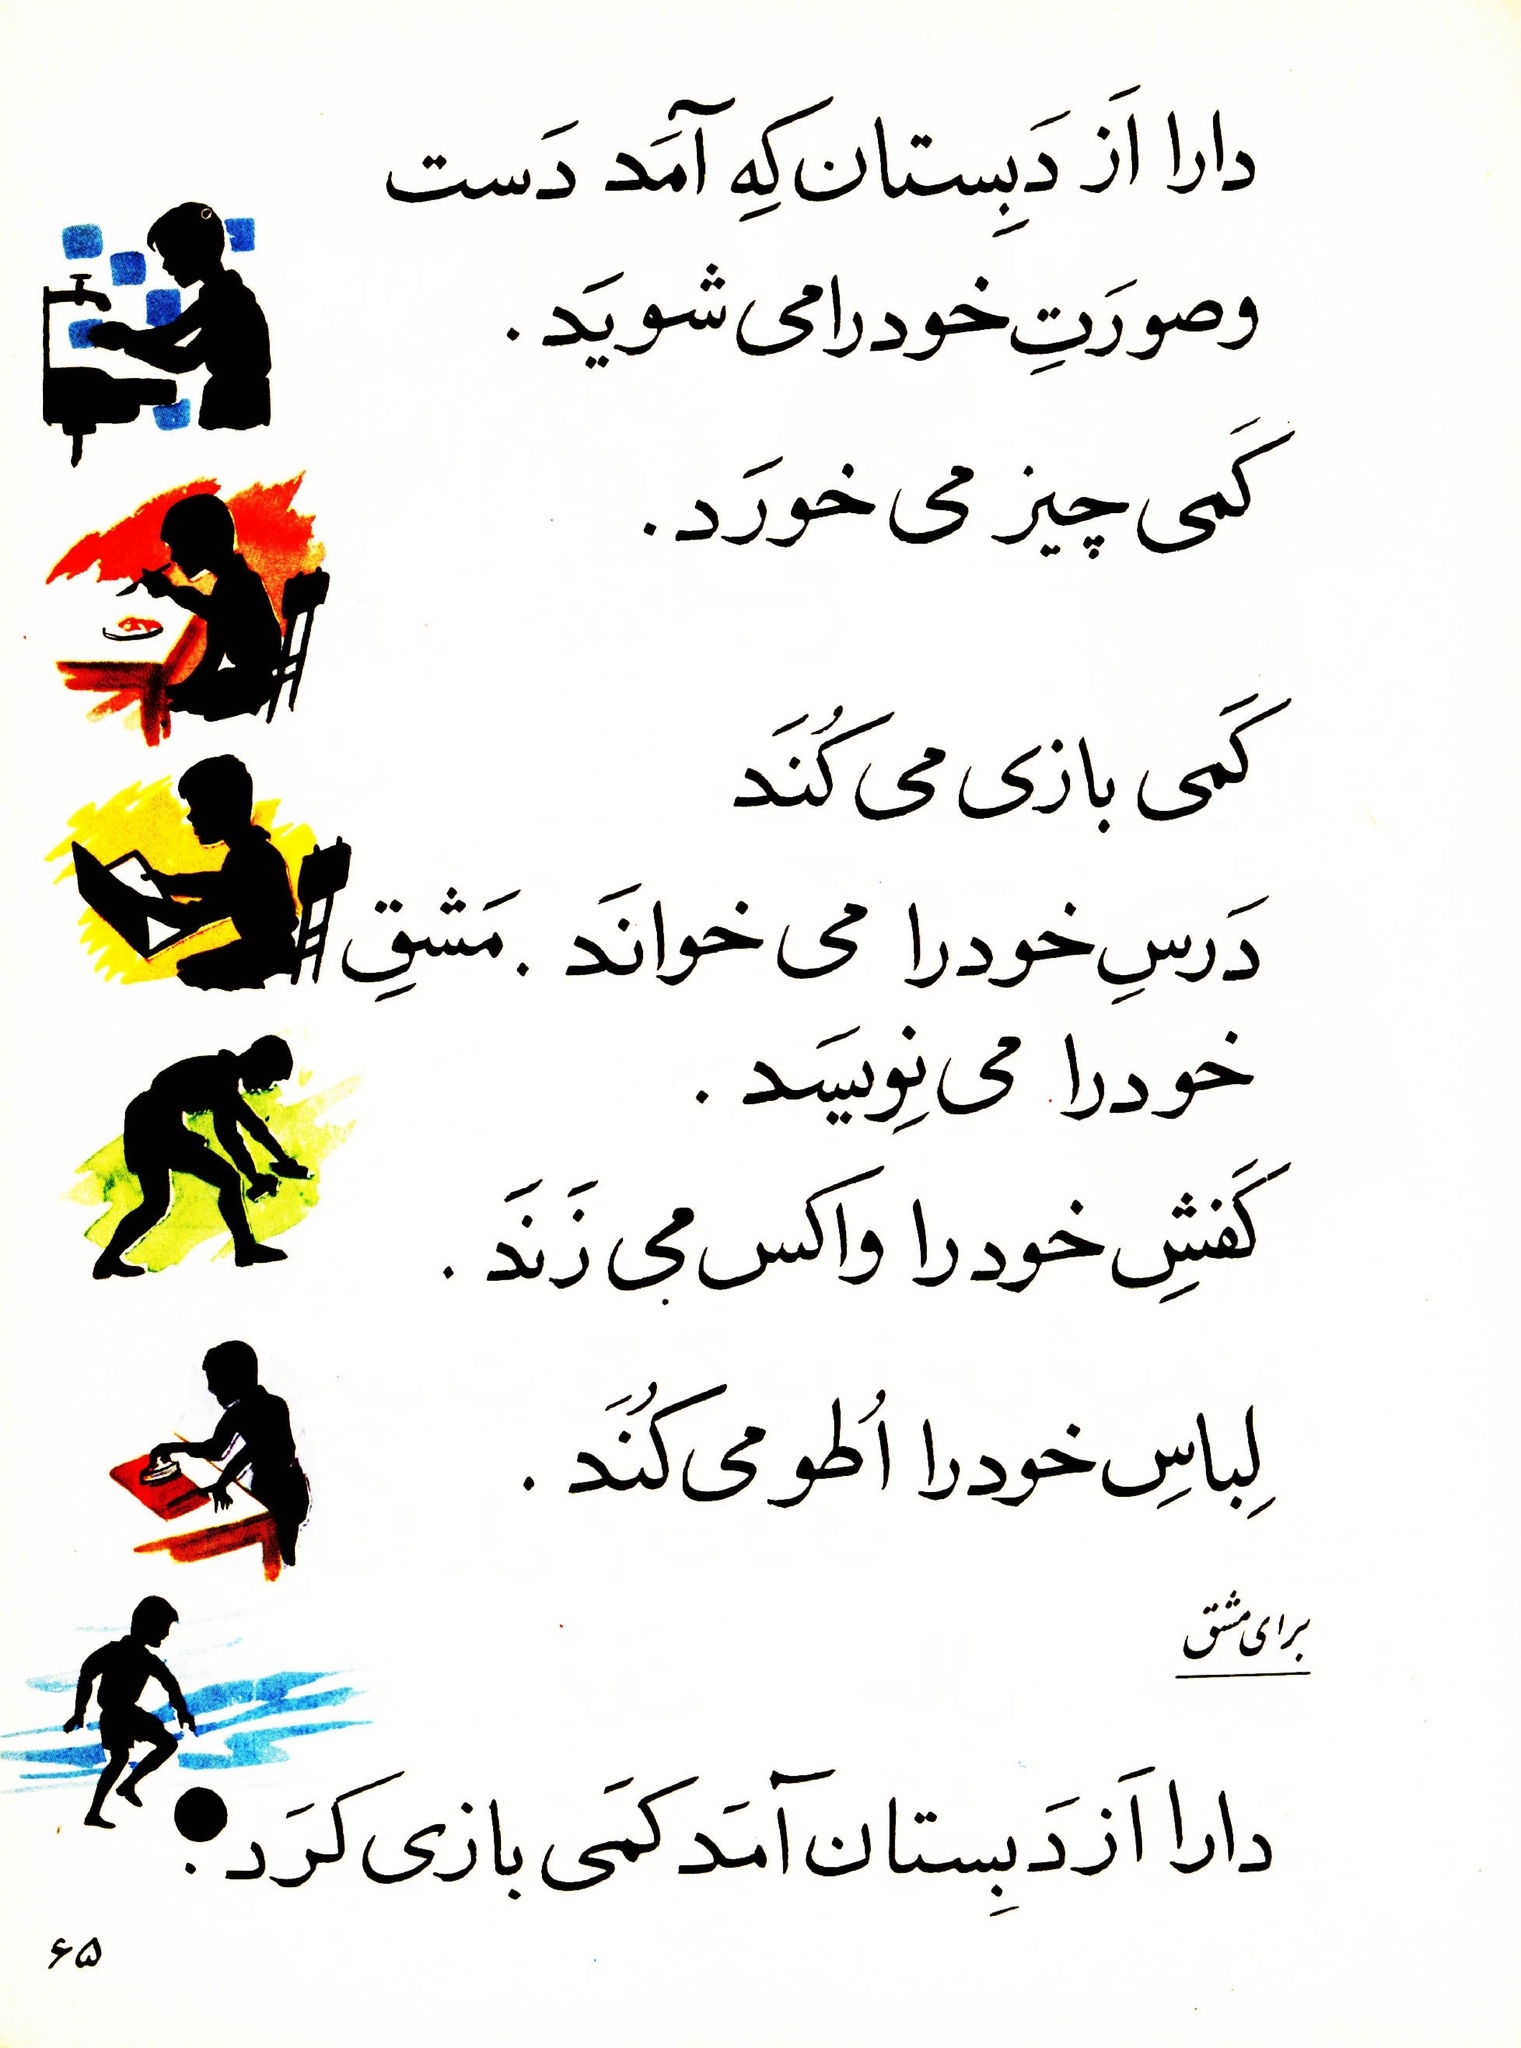 دارا اَز دَبِستان کِه آمَد دَست
و صورَتِ خود را می شویَد .
کَمی چیز می خورَد .
کَمی بازی می کُنَد
دَرسِ خود را می خوانَد . مَشقِ
خود را می نِویسَد .
کَفشِ خود را واکس می زَنَد .
لِباسِ خود را اُطو می کُنَد .
برای مشق
دارا اَز دَبِستان آمَد کَمی بازی کَرد .
۶۵